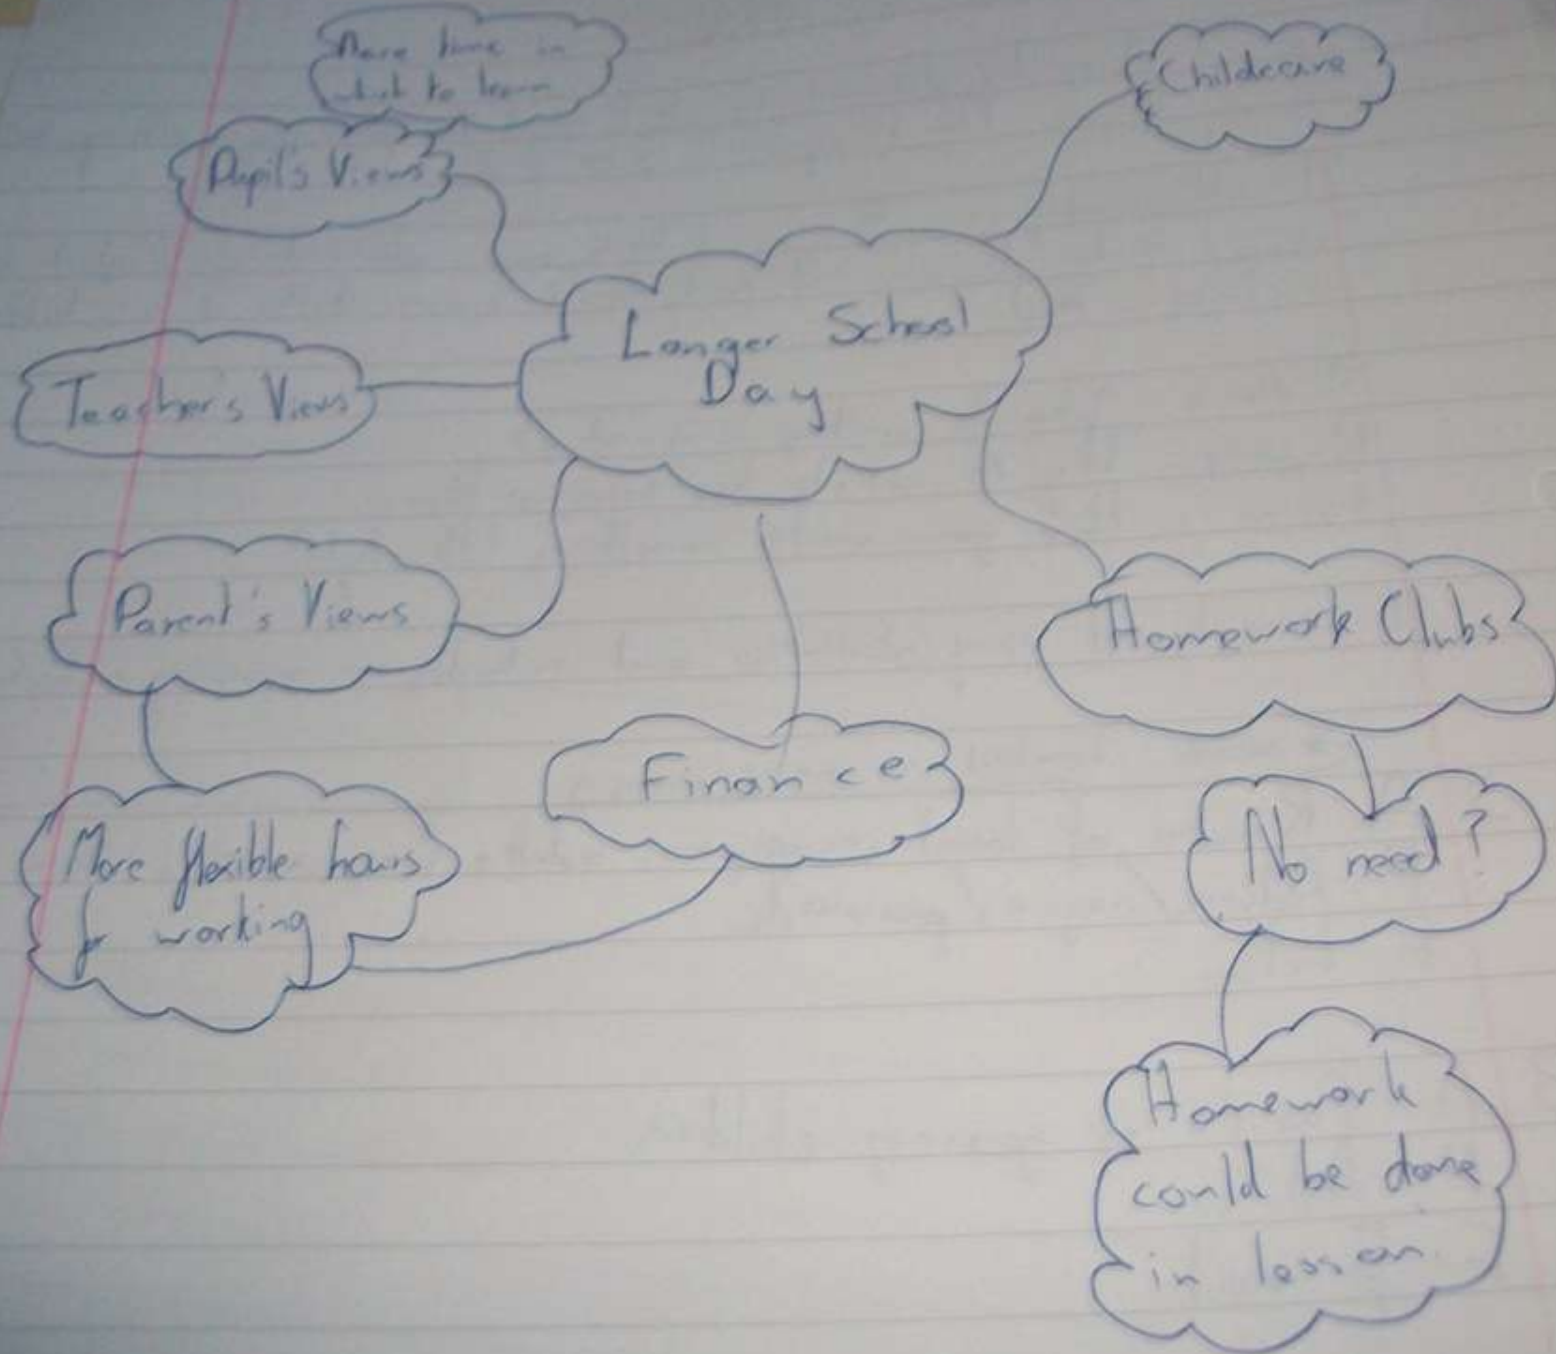 More time in
which to learn
Childcare
Pupil's Views
Longer School
Day
Teacher's Views
Parent's Views
Homework Clubs
Finance
More flexible hours
for working
No need?
Homework
could be done
in lesson